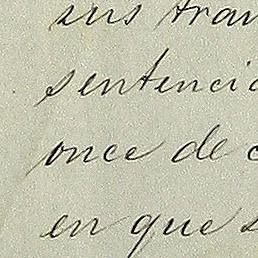 sus tran
sentencia
once de
en que s